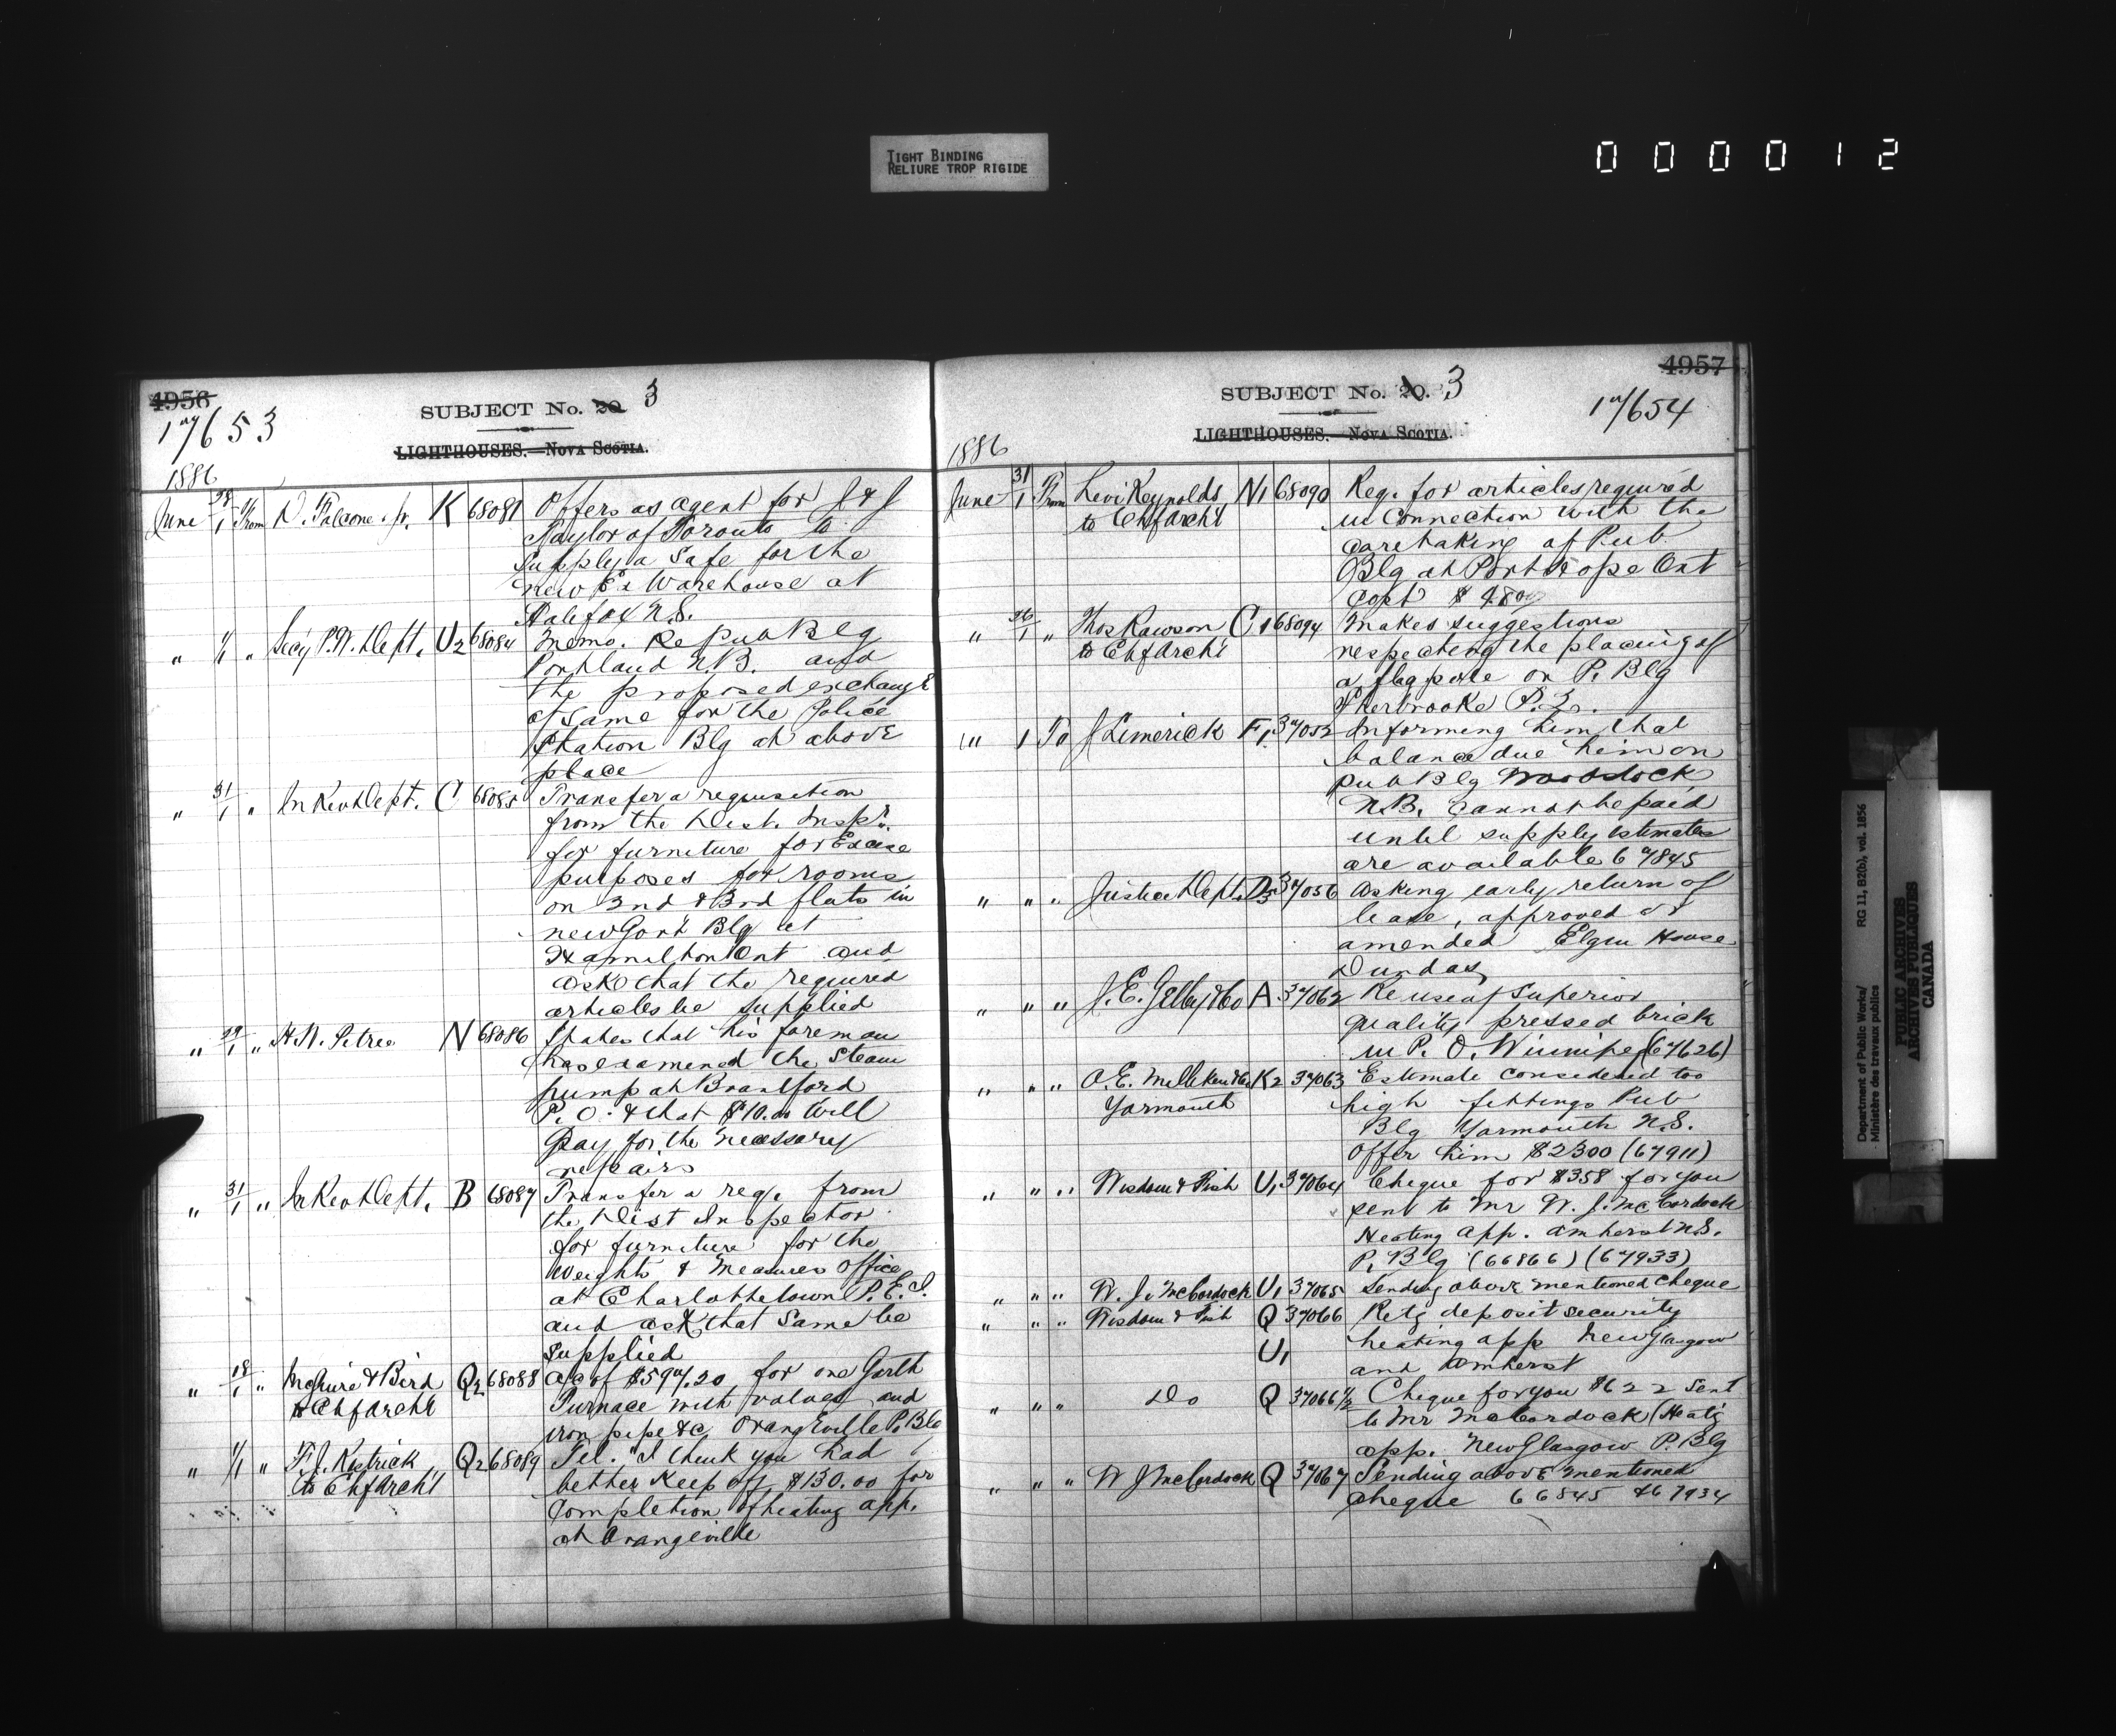 TIGHT BINDING
RELIURE TROP RIGIDE
0 0 0 0 1 2
4956
17653
SUBJECT No. 20 3
LIGHTHOUSES.—NOVA SCOTIA.
1886
June 28/1 From D. Falcone Jr. K 68081 Offers as agent for J & J
Taylor of Toronto to
supply a safe for the
new Ex Warehouse at
Halifax N.S.
" 1/1 " Secy P.W. Dept. U2 68084 Memo. Re pub Blg
Portland N.B. and
the proposed exchange
of same for the Police
Station Blg at above
place
" 31/1 " In Rev Dept. C 68085 Transfer a requisition
from the Dist. Inspr.
for furniture for Excise
purposes for rooms
on 2nd & 3rd flats in
new Govt Blg at
Hamilton Ont and
ask that the required
articles be supplied
" 29/1 " H.N. Petrie N 68086 States that his foreman
has examined the steam
pump at Brantford
P.O. & that $10.00 will
pay for the necessary
repairs
" 31/1 " In Rev Dept. B 68087 Transfer a req. from
the Dist Inspector
for furniture for the
Weights & Measures Office
at Charlottetown P.E.I.
and ask that same be
supplied
" 18/1 " McGuire & Bird Q2 68088 a/c of $597.20 for one Gurth
to Chf Archt Furnace with valves and
iron pipe &c. Orangeville P. Blg
" 1/1 " F.J. Rastrick Q2 68089 Tel. "I think you had
to Chf Archt better keep off $130.00 for
completion of heating app.
at Orangeville
4957
17654
SUBJECT No. 20. 3
LIGHTHOUSES.—NOVA SCOTIA.
1886
June 31/1 From Levi Reynolds N1 68090 Req. for articles required
to Chf Archt in connection with the
caretaking of Pub
Blg at Port Hope Ont
Cost $4.80
" 26/1 " Thos Rawson C1 68094 Makes suggestions
to Chf Archt respecting the placing of
a flag pole on P. Blg
Sherbrooke P.Q.
" 1 To J Limerick F1 37052 Informing him that
balance due him on
pub Blg Woodstock
N.B. cannot be paid
until supply estimates
are available 67845
" " " Justice Dept. D3 37056 Asking early return of
lease, approved or
amended Elgin House
Dundas
" " " J.E. Gelley & Co A 37062 Re use of superior
quality pressed brick
in P.O. Winnipeg (67626)
" " " O.E. Milliken & Co K2 37063 Estimate considered too
Yarmouth high fittings Pub
Blg Yarmouth N.S.
Offer him $2300 (67911)
" " " Wisdom & Fish U1 37064 Cheque for $358 for you
sent to Mr W.J. McCordock
Heating app. Amherst N.S.
P. Blg (66866) (67933)
" " " W.J. McCordock U1 37065 Sending above mentioned cheque
" " " Wisdom & Fish Q 37066 Retg deposit security
U1 heating app New Glasgow
and Amherst
" " " Do Q 37066½ Cheque for you $622 sent
to Mr McCordock (Heatg
app. New Glasgow P. Blg
" " " W J McCordock Q 37067 Sending above mentioned
cheque 66845 & 67934
Department of Public Works/
Ministère des travaux publics
RG 11, B2(b), vol. 1856
PUBLIC ARCHIVES
ARCHIVES PUBLIQUES
CANADA